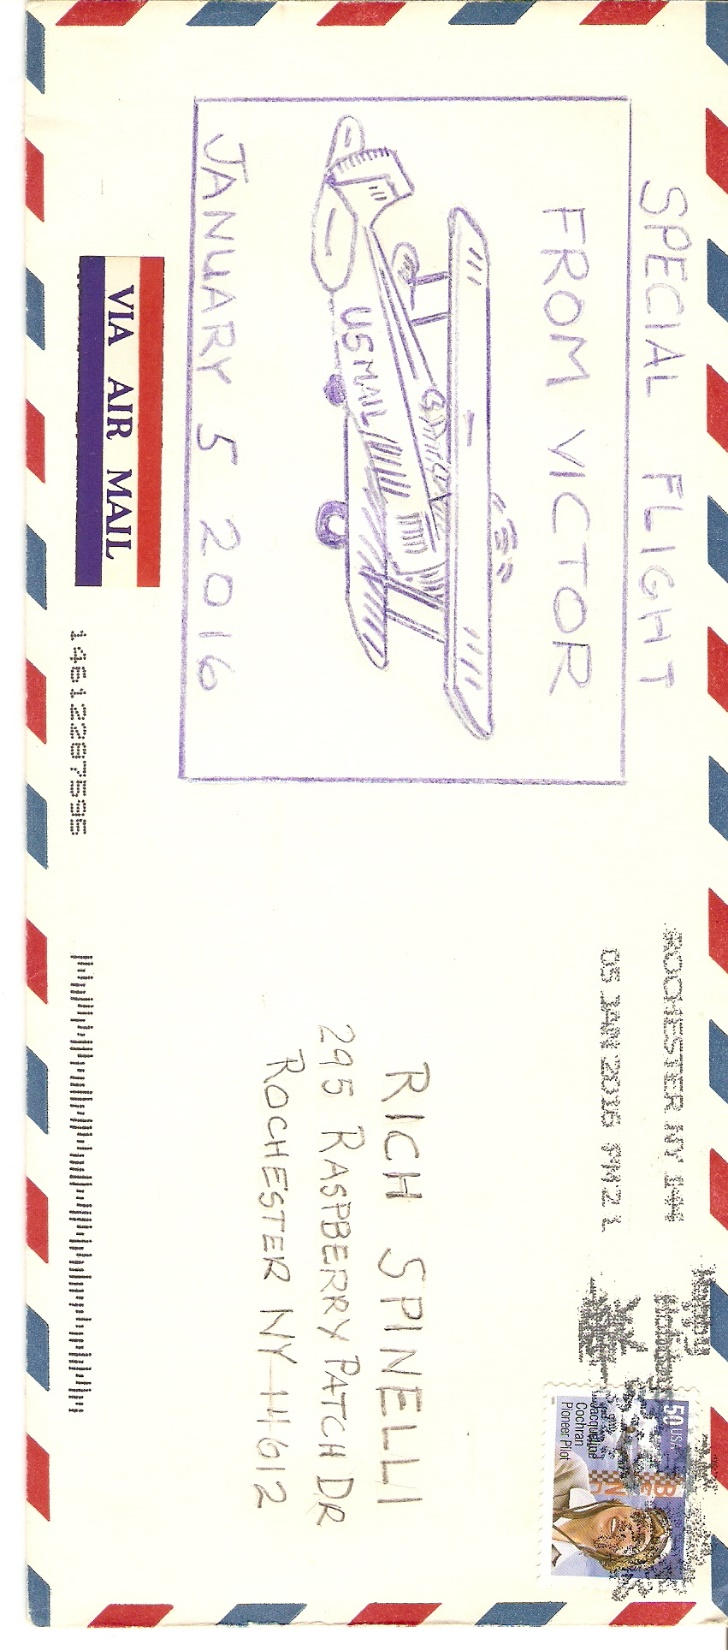 SPECIAL FLIGHT
FROM VICTOR
US MAIL
JANUARY 5 2016
VIA AIR MAIL
14612287595
ROCHESTER NY 144
05 JAN 2016 PM 2 L
50 USA
Jacqueline
Cochran
Pioneer Pilot
RICH SPINELLI
295 RASPBERRY PATCH DR
ROCHESTER NY 14612